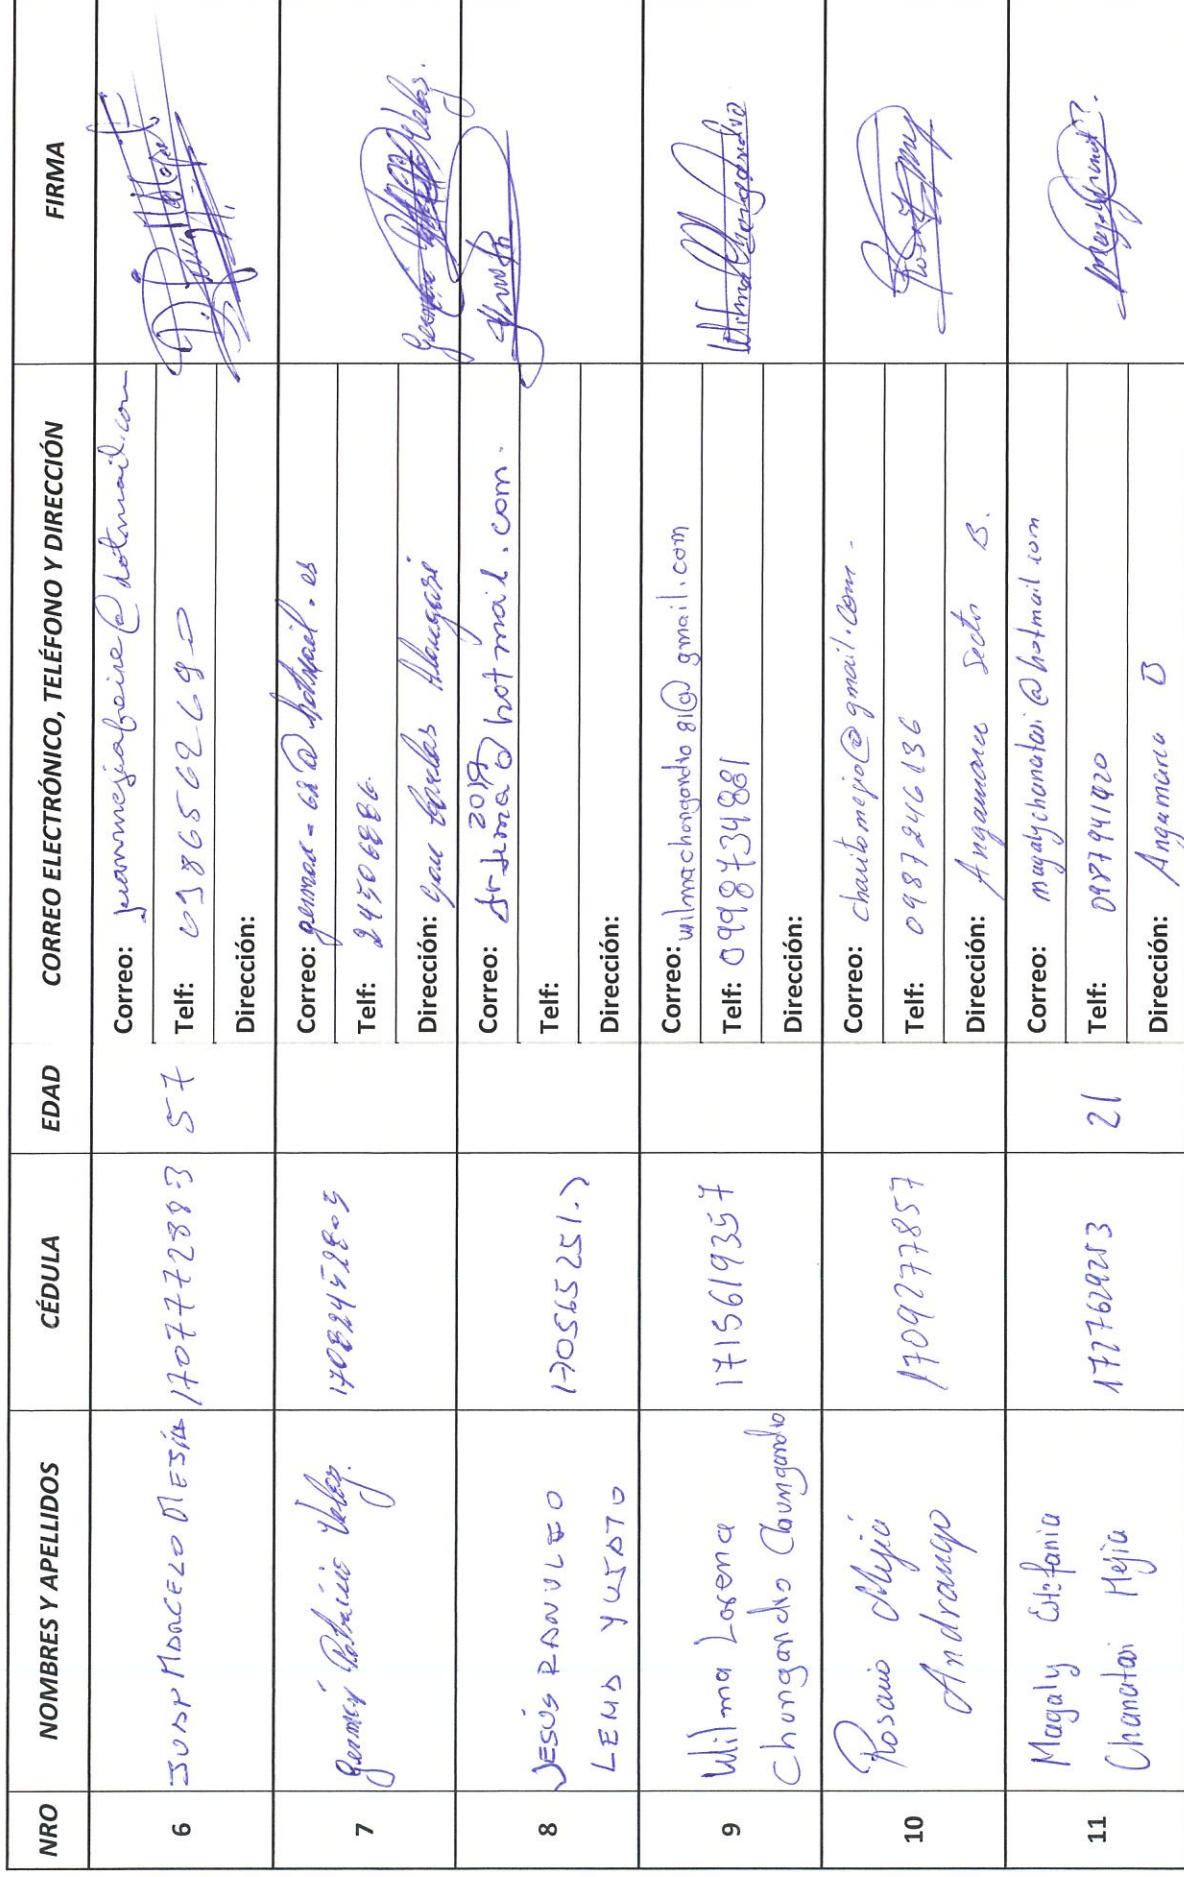 NRO NOMBRES Y APELLIDOS CÉDULA EDAD CORREO ELECTRÓNICO, TELÉFONO Y DIRECCIÓN FIRMA
6 JUAN MARCELO MEJÍA 170777288-3 57
Correo: juanmejiafreire@hotmail.com
Telf:
Dirección:
7 Germán Patricio Velez.
Correo:
Telf: 24506886
Dirección: San Carlos Alangasí
8 JESÚS RANULFO
LEMA YUSATO
Correo: dr-lema2019@hotmail.com.
Telf:
Dirección:
9 Wilma Lorena
Chongandro Chungandro
1715619357
Correo: wilmachongandro81@gmail.com
Telf: 0998734881
Dirección:
10 Rosario Mejia
Andrango
1709277857
Correo: charitomejio@gmail.com-
Telf: 0987246136
Dirección: Angamarca Sector B.
11 Magaly Estefania
Chanatasi Mejia
1727629253 21
Correo: magalychanatasi@hotmail.com
Telf: 0987941920
Dirección: Angamarca B